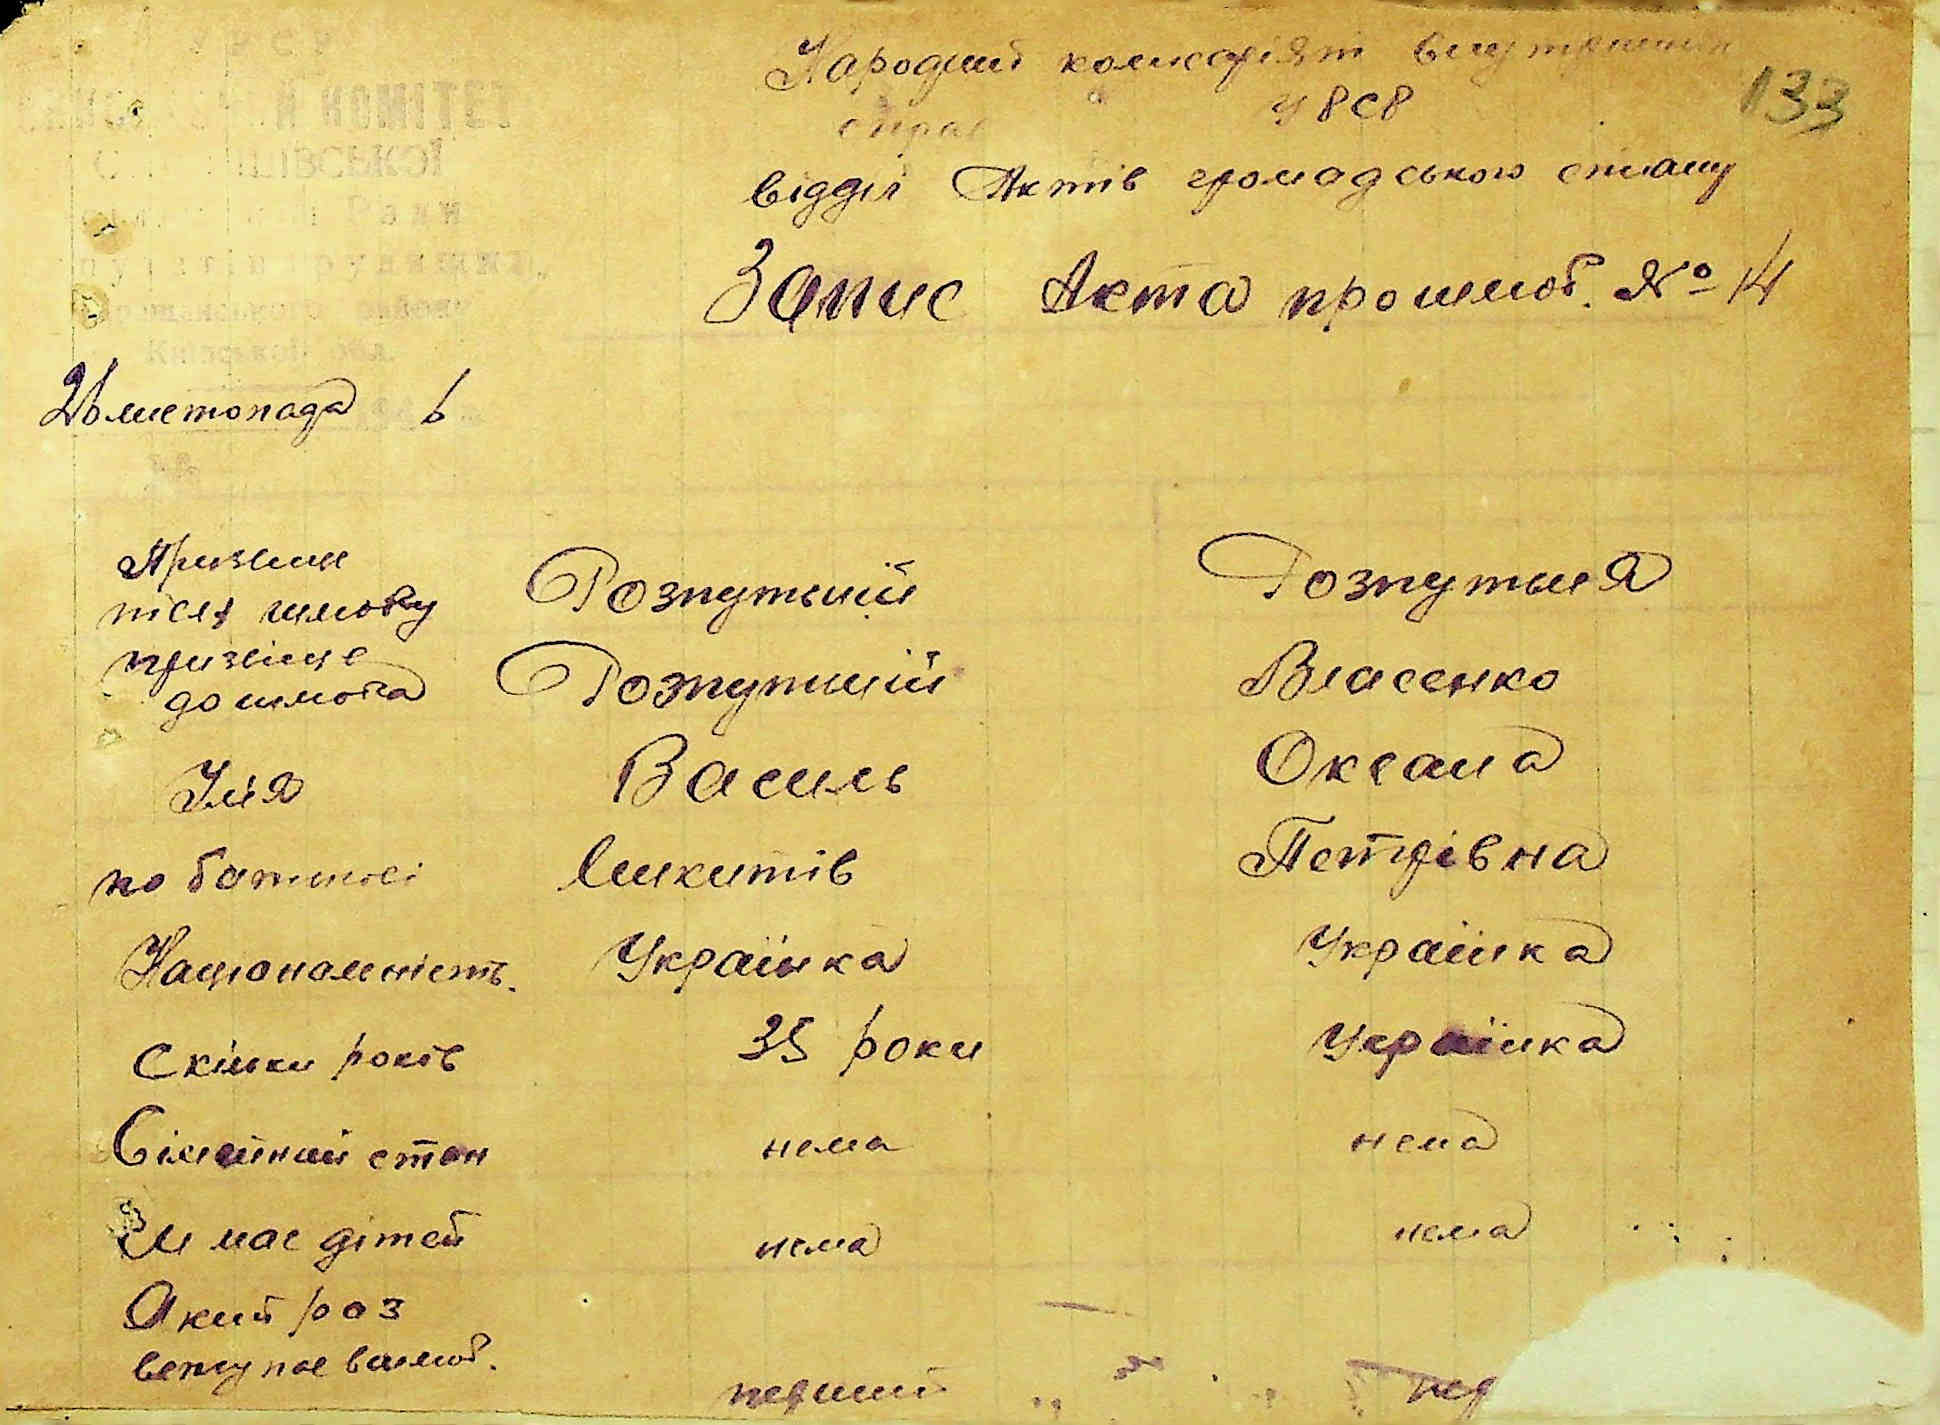 УРСР
КОМІТЕТ
Київської обл.
Народний комисаріят внутрішніх
справ УРСР
Відділ Актів громадського стану
Запис Акта про шлюб. № 14
26 листопада 6
Призвище
після шлюбу Розпутьній Розпутьня
призвіще
до шлюба Розпутьній Власенко
Імя Василь Оксана
по батькові Микитів Петрівна
Національність. Українка Українка
Скільки років 35 роки Українка
Сімейний стан нема нема
Чи має дітей нема нема
Який раз
вступає в шлюб.
перший пер
133